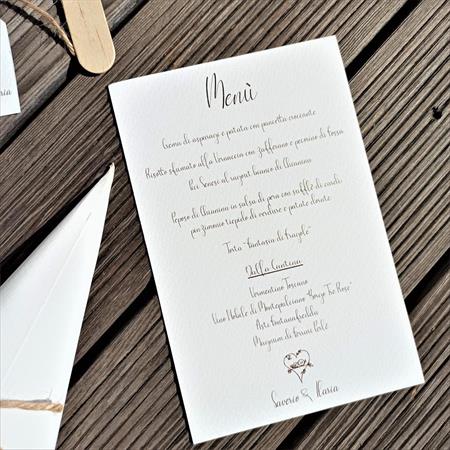 Menù
Crema di asparagi e patata con pancetta croccante
Risotto sfumato alla Vernaccia con zafferano e pecorino di fossa
Pici Senesi al ragout bianco di Chianina
Peposo di Chianina in salsa di pera con soufflè di cardi
pinzimonio tiepido di verdure e patate dorate
Torta "fantasia di fragole"
Dalla Cantina
Vermentino Toscano
Vino Nobile di Montepulciano "Borgo Tre Rose"
Asti Fontanafredda
Magnum di Ferrari Perlè
Saverio & Ilaria